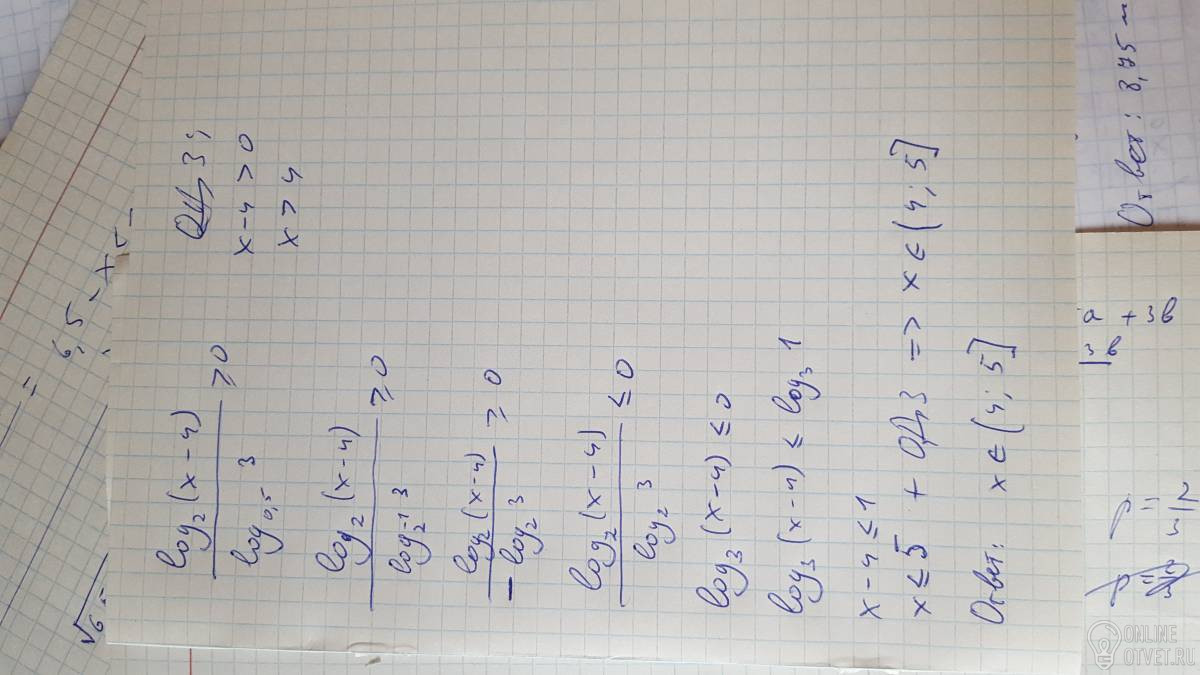 log₂(x-4) / log₀,₅ 3 ≥ 0
ОДЗ:
x-4 > 0
x > 4
log₂(x-4) / log₂⁻¹ 3 ≥ 0
log₂(x-4) / -log₂ 3 ≥ 0
log₂(x-4) / log₂ 3 ≤ 0
log₃(x-4) ≤ 0
log₃(x-4) ≤ log₃ 1
x-4 ≤ 1
x ≤ 5 + ОДЗ => x ∈ (4; 5]
Ответ: x ∈ (4; 5]
Ответ: 8,75 м
a + 3b
3b
ONLINE
OTVET.RU